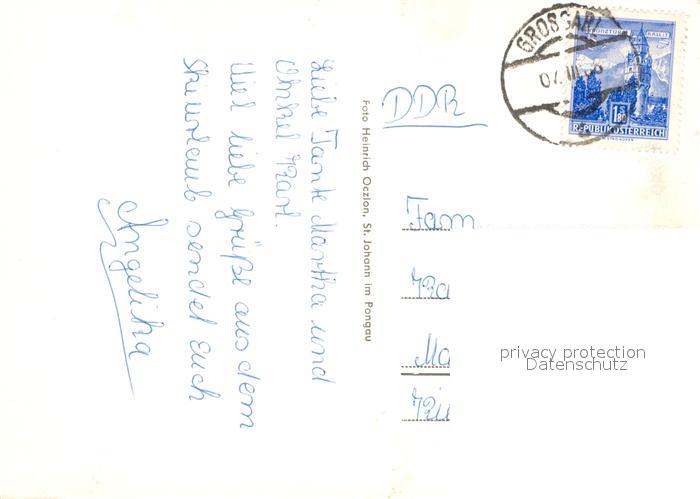 Liebe Tante Martha und
Onkel Karl.
Viel liebe Grüße aus dem
Skiurlaub sendet Euch
Angelika
Foto Heinrich Oczlon, St. Johann im Pongau
DDR
GROSSARL
1.80
REPUBLIK ÖSTERREICH
Fam
Ka
Ma
privacy protection
Datenschutz